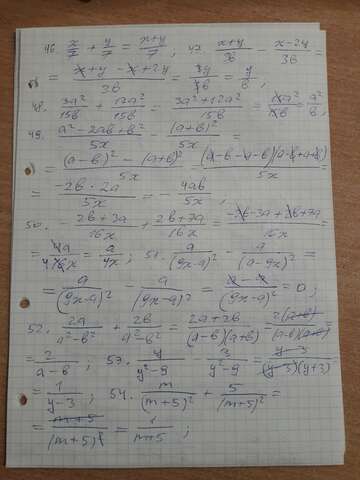 46. x/7 + y/7 = (x+y)/7, 47. (x+y)/3b - (x-2y)/3b =
= (x+y-x+2y)/3b = 3y/3b = y/b,
48. 3a²/15b + 12a²/15b = (3a²+12a²)/15b = 15a²/15b = a²/b,
49. (a²-2ab+b²)/5x - (a+b)²/5x =
= ((a-b)² - (a+b)²)/5x = (a-b-a-b)(a-b+a+b)/5x =
= (-2b · 2a)/5x = - 4ab/5x,
50. - (2b+3a)/16x + (2b+7a)/16x = (-2b-3a+2b+7a)/16x =
= 4a/16x = a/4x; 51. a/(9x-a)² - a/(a-9x)² =
= a/(9x-a)² - a/(9x-a)² = (a-a)/(9x-a)² = 0;
52. 2a/(a²-b²) + 2b/(a²-b²) = (2a+2b)/(a-b)(a+b) = 2(a+b)/(a-b)(a+b) =
= 2/(a-b); 53. y/(y²-9) - 3/(y²-9) = (y-3)/(y-3)(y+3) =
= 1/(y-3); 54. m/(m+5)² + 5/(m+5)² =
= (m+5)/(m+5)² = 1/(m+5);